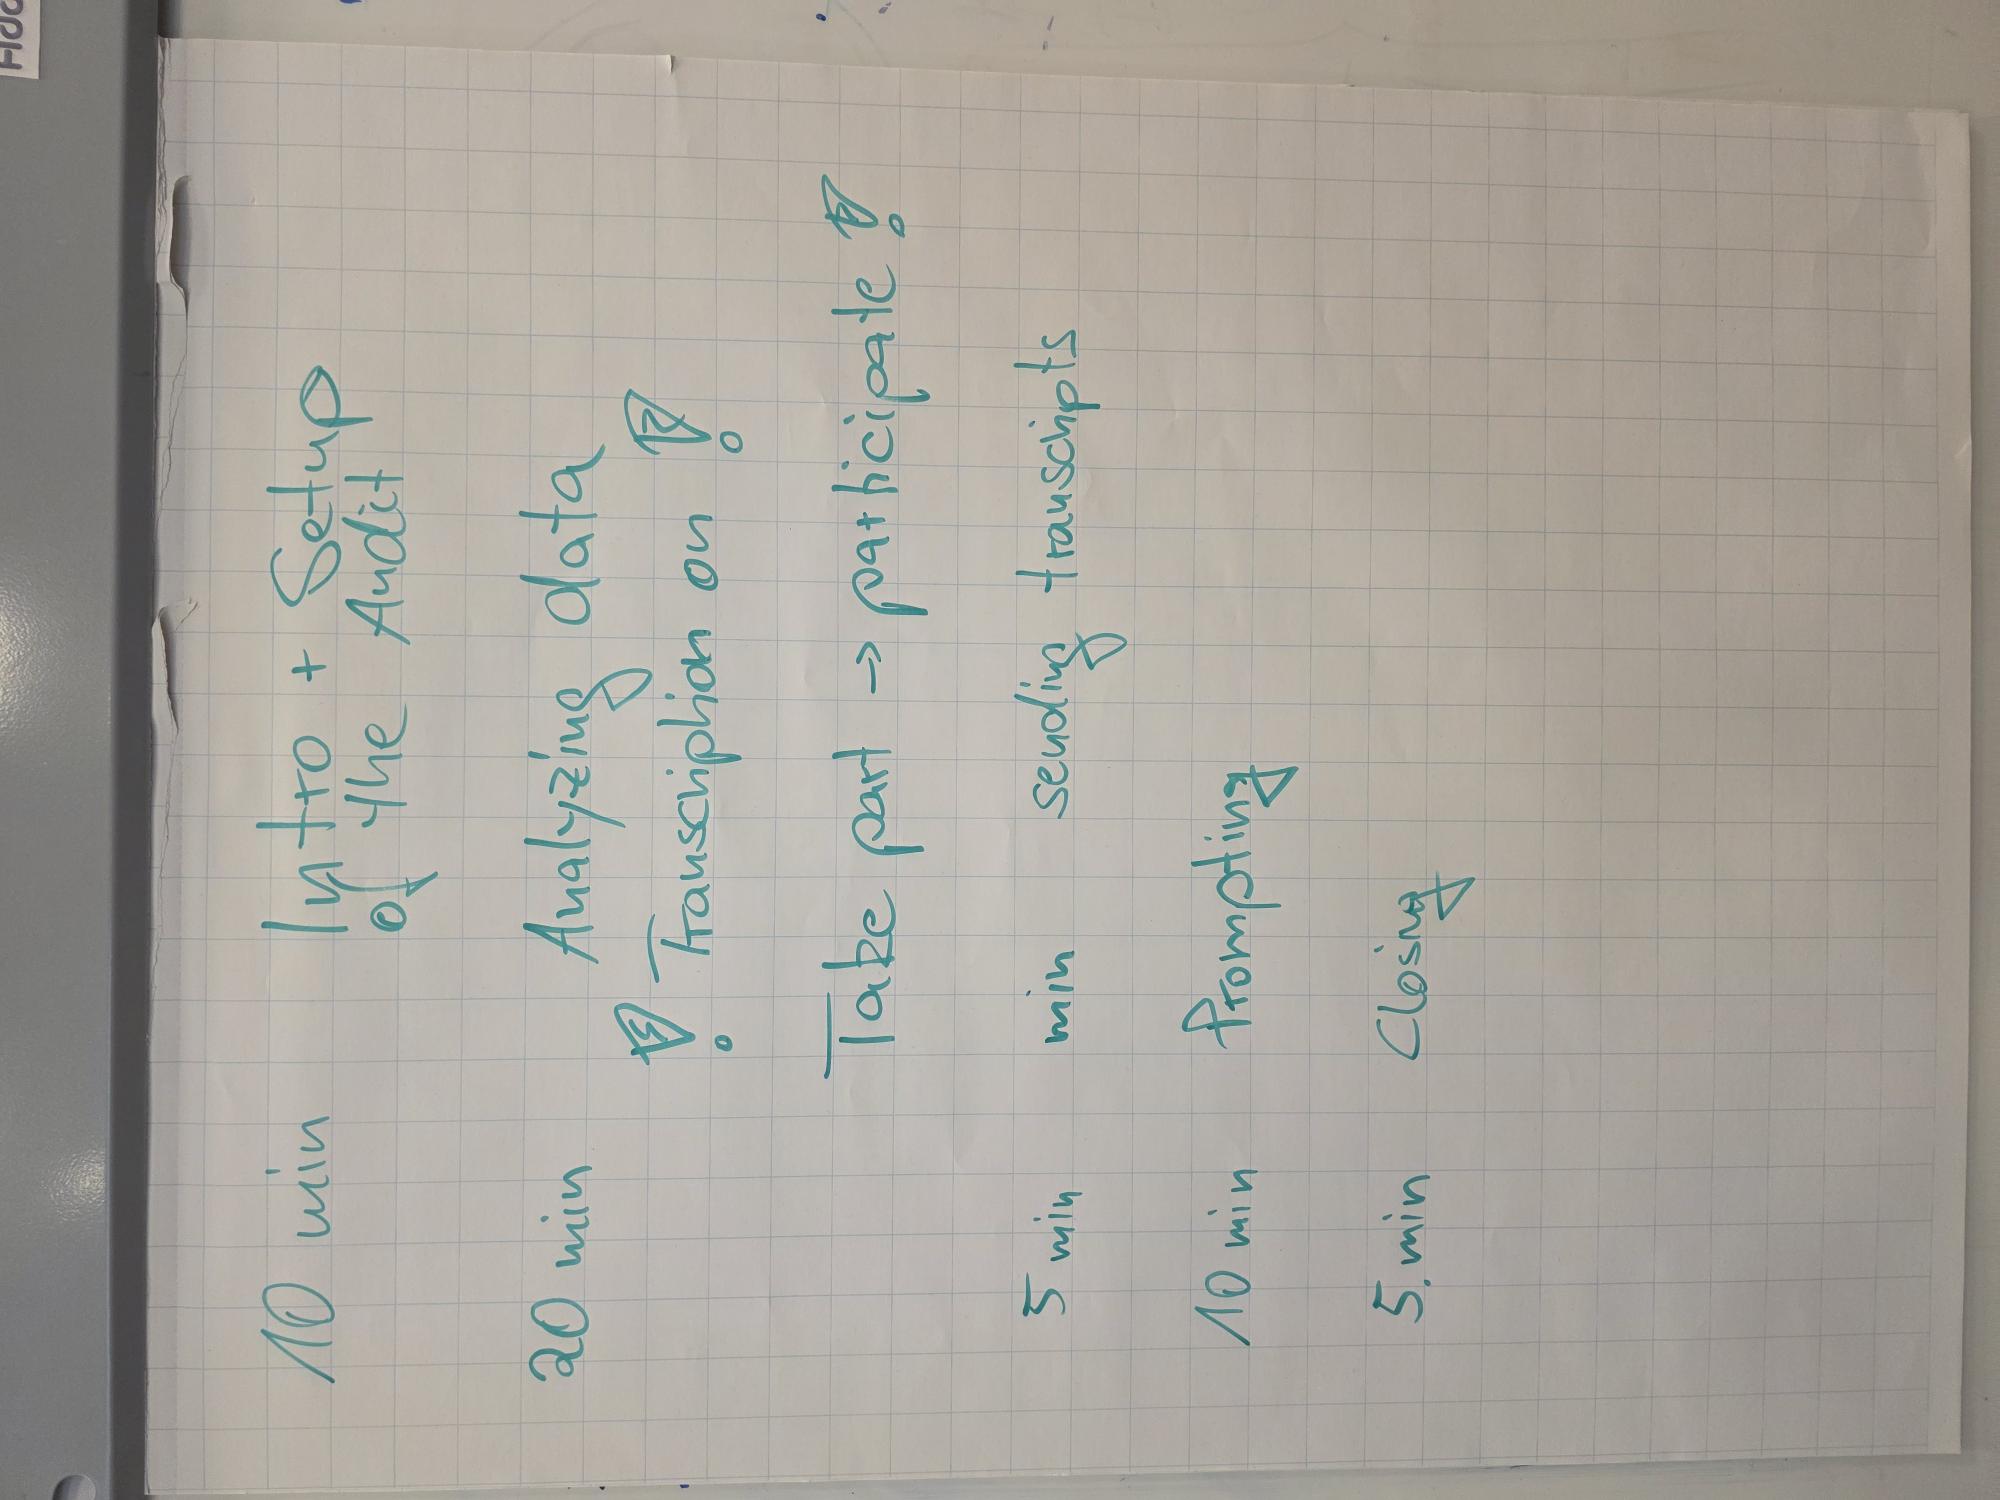 10 min Intro + Setup
of the Audit
20 min Analyzing data
! Transcription on !
Take part → participate !
5 min min sending transcripts
10 min Prompting
5. min Closing